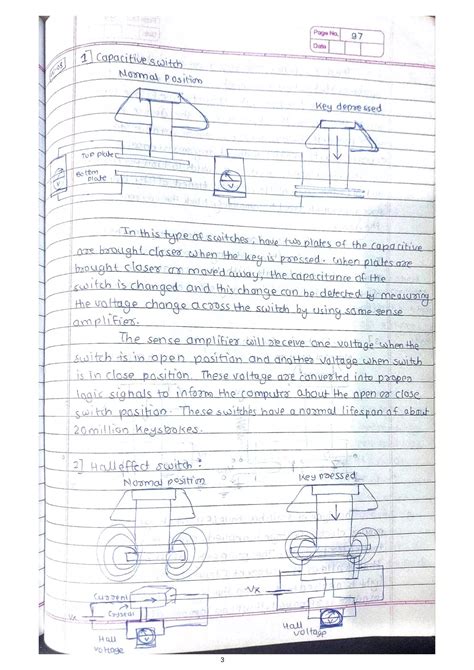 Page No. 97
Date
1] Capacitive switch
Normal Position
Key depressed
Top plate
Bottom
plate
In this type of switches, have two plates of the capacitive
are brought closer when the key is pressed. When plates are
brought closer or moved away, the capacitance of the
switch is changed and this change can be detected by measuring
the voltage change across the switch by using some sense
amplifier.
The sense amplifier will receive one voltage when the
switch is in open position and another voltage when switch
is in close position. These voltage are converted into proper
logic signals to inform the computer about the open or close
switch position. These switches have a normal lifespan of about
20 million keystrokes.
2] Hall effect switch :
Normal position
Key pressed
Current
Vx
Crystal
Vx
Hall
voltage
Hall
voltage
3